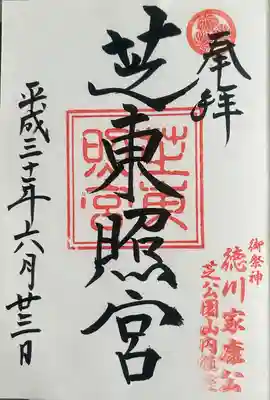 奉拝
御祭神
徳川家康公
芝公園山内鎮座
芝東照宮
芝東照宮
平成三十年六月廿三日